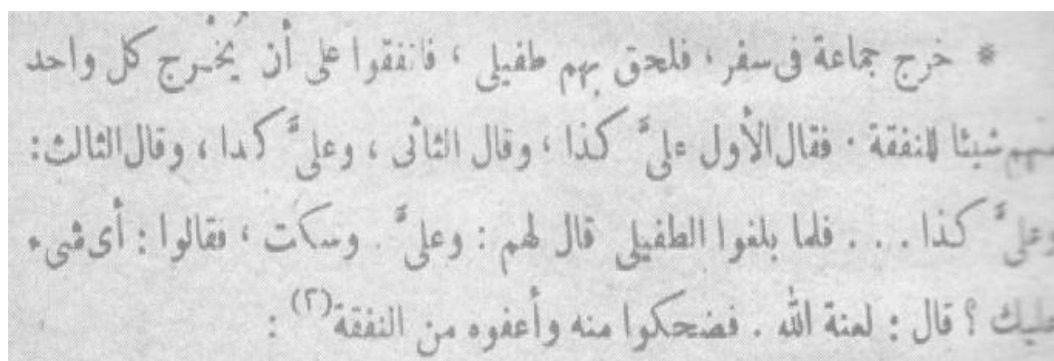 * خرج جماعة فى سفر ، فلحق بهم طفيلى ، فانفقوا على أن يُخْرج كل واحد
منهم شيئا للنفقة . فقال الأول علىَّ كذا ، وقال الثانى ، وعلىَّ كدا ، وقال الثالث :
وعلىَّ كذا . . . فلما بلغوا الطفيلى قال لهم : وعلىَّ . وسكت ، فقالوا : أى شىء
عليك ؟ قال : لعنة الله . فضحكوا منه وأعفوه من النفقة (٢) :